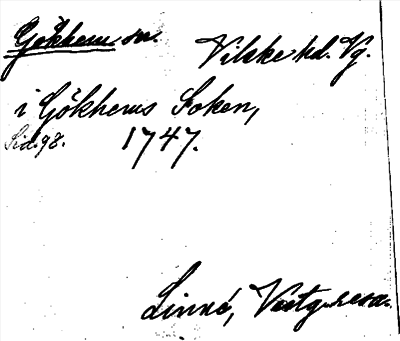 Gökhem sn. Vilske hd. Vg.
i Gökhems Soken,
Sid. 98. 1747.
Linné, Vestg. resa.